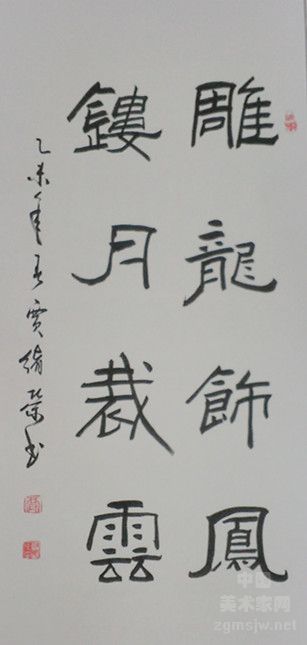 雕龍飾鳳
鏤月裁雲
乙未年賈書
中国
美术家网
zgmsjw.net